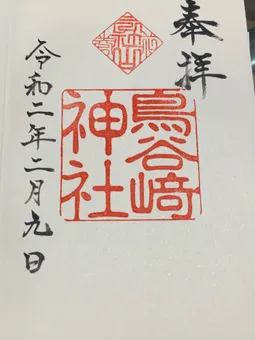 奉拝
鳥谷崎
神社
令和二年二月九日